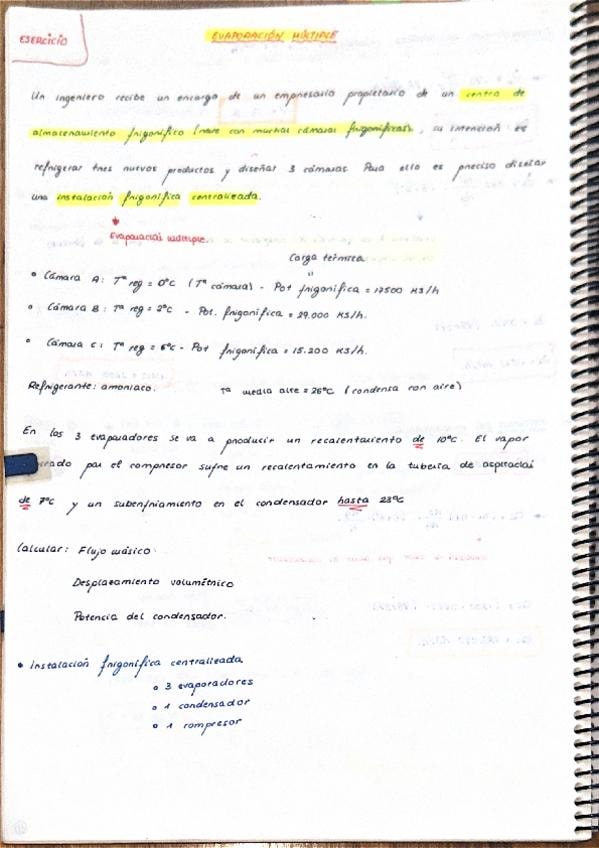 EJERCICIO
EVAPORACIÓN MÚLTIPLE
Un ingeniero recibe un encargo de un empresario propietario de un centro de
almacenamiento frigorífico (nave con muchas cámaras frigoríficas), su intención es
refrigerar tres nuevos productos y diseñar 3 cámaras. Para ello es preciso diseñar
una instalación frigorífica centralizada.
Evaporación múltiple.
Carga térmica
"
• Cámara A: Tª reg = 0ºC (Tª cámara) - Pot frigorífica = 17500 KJ/h
• Cámara B: Tª reg = 2ºC - Pot. frigorífica = 29.000 KJ/h.
• Cámara C: Tª reg = 6ºC - Pot frigorífica = 15.200 KJ/h.
Refrigerante: amoniaco. Tª media aire = 26ºC (condensa con aire)
En los 3 evaporadores se va a producir un recalentamiento de 10ºC. El vapor
por el compresor sufre un recalentamiento en la tubería de aspiración
de 7ºC y un subenfriamiento en el condensador hasta 28ºC
Calcular: Flujo másico.
Desplazamiento volumétrico
Potencia del condensador.
• Instalación frigorífica centralizada
• 3 evaporadores
• 1 condensador
• 1 compresor